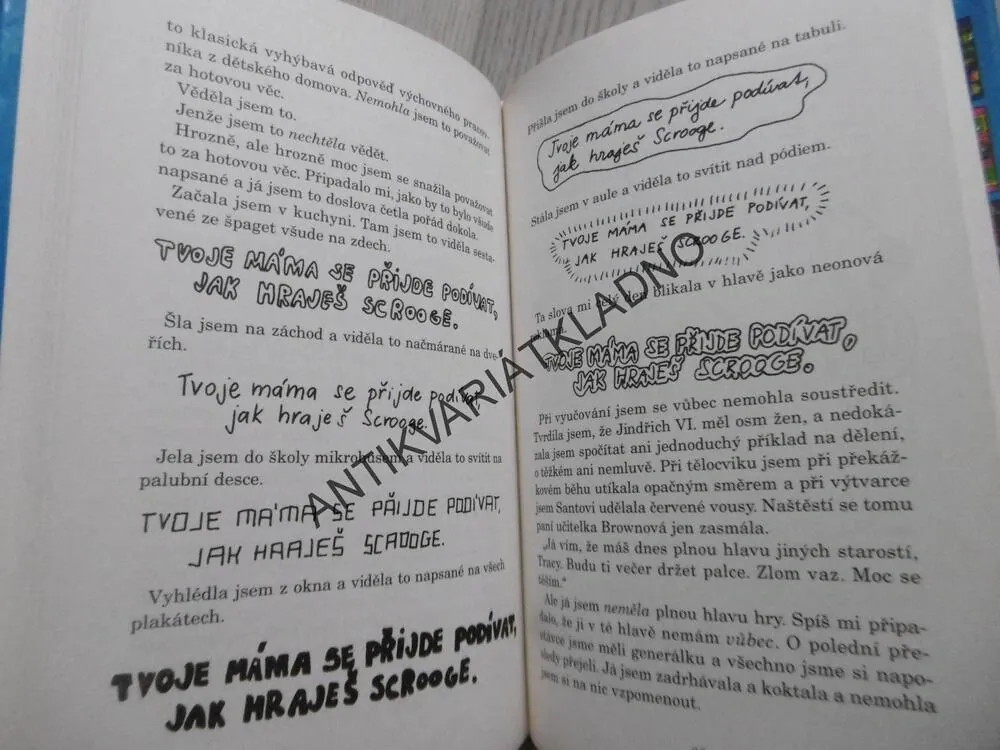 to klasická vyhýbavá odpověď výchovného pracov-
níka z dětského domova. Nemohla jsem to považovat
za hotovou věc.
Věděla jsem to.
Jenže jsem to nechtěla vědět.
Hrozně, ale hrozně moc jsem se snažila považovat
to za hotovou věc. Připadalo mi, jako by to bylo všude
napsané a já jsem to doslova četla pořád dokola.
Začala jsem v kuchyni. Tam jsem to viděla sesta-
vené ze špaget všude na zdech.
TVOJE MÁMA SE PŘIJDE PODÍVAT,
JAK HRAJEŠ SCROOGE.
Šla jsem na záchod a viděla to načmárané na dve-
řích.
Tvoje máma se přijde podívat,
jak hraješ Scrooge.
Jela jsem do školy mikrobusem a viděla to svítit na
palubní desce.
TVOJE MÁMA SE PŘIJDE PODÍVAT,
JAK HRAJEŠ SCROOGE.
Vyhlédla jsem z okna a viděla to napsané na všech
plakátech.
TVOJE MÁMA SE PŘIJDE PODÍVAT,
JAK HRAJEŠ SCROOGE.
Přišla jsem do školy a viděla to napsané na tabuli.
Tvoje máma se přijde podívat,
jak hraješ Scrooge.
Stála jsem v aule a viděla to svítit nad pódiem.
TVOJE MÁMA SE PŘIJDE PODÍVAT,
JAK HRAJEŠ SCROOGE.
Ta slova mi celý den blikala v hlavě jako neonová
reklama.
TVOJE MÁMA SE PŘIJDE PODÍVAT,
JAK HRAJEŠ SCROOGE.
Při vyučování jsem se vůbec nemohla soustředit.
Tvrdila jsem, že Jindřich VI. měl osm žen, a nedoká-
zala jsem spočítat ani jednoduchý příklad na dělení,
o těžkém ani nemluvě. Při tělocviku jsem při překáž-
kovém běhu utíkala opačným směrem a při výtvarce
jsem Santovi udělala červené vousy. Naštěstí se tomu
paní učitelka Brownová jen zasmála.
„Já vím, že máš dnes plnou hlavu jiných starostí,
Tracy. Budu ti večer držet palce. Zlom vaz. Moc se
těším."
Ale já jsem neměla plnou hlavu hry. Spíš mi připa-
dalo, že ji v té hlavě nemám vůbec. O polední pře-
stávce jsme měli generálku a všechno jsme si napo-
sledy přejeli. Já jsem zadrhávala a koktala a nemohla
jsem si na nic vzpomenout.
ANTIKVARIATKLADNO